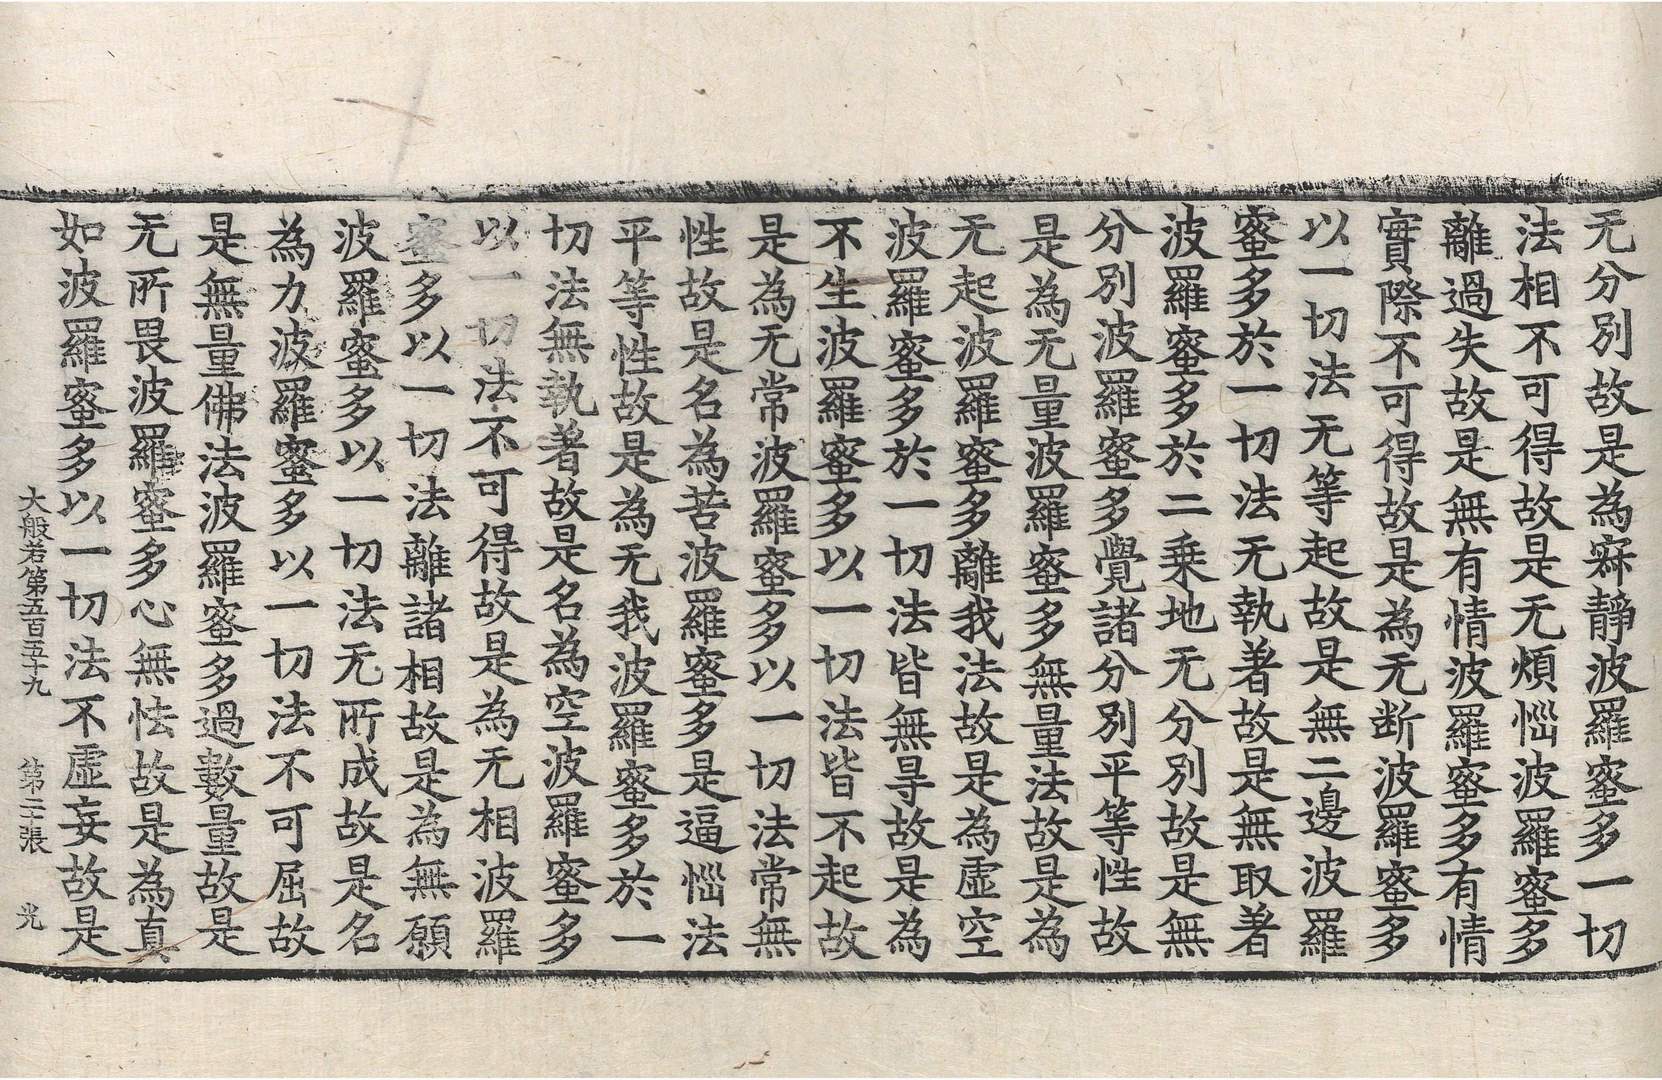 无分別故是為寂靜波羅蜜多一切
法相不可得故是无煩惱波羅蜜多
離過失故是無有情波羅蜜多有情
實際不可得故是為无断波羅蜜多
以一切法无等起故是無二邊波羅
蜜多於一切法无執著故是無取著
波羅蜜多於二乗地无分別故是無
分別波羅蜜多覺諸分別平等性故
是為无量波羅蜜多無量法故是為
无起波羅蜜多離我法故是為虛空
波羅蜜多於一切法皆無㝵故是為
不生波羅蜜多以一切法皆不起故
是為无常波羅蜜多以一切法常無
性故是名為苦波羅蜜多是逼惱法
平等性故是為无我波羅蜜多於一
切法無執著故是名為空波羅蜜多
以一切法不可得故是為无相波羅
蜜多以一切法離諸相故是為無願
波羅蜜多以一切法无所成故是名
為力波羅蜜多以一切法不可屈故
是無量佛法波羅蜜多過數量故是
无所畏波羅蜜多心無怯故是為真
如波羅蜜多以一切法不虛妄故是
大般若第五百五十九 第二十張 光